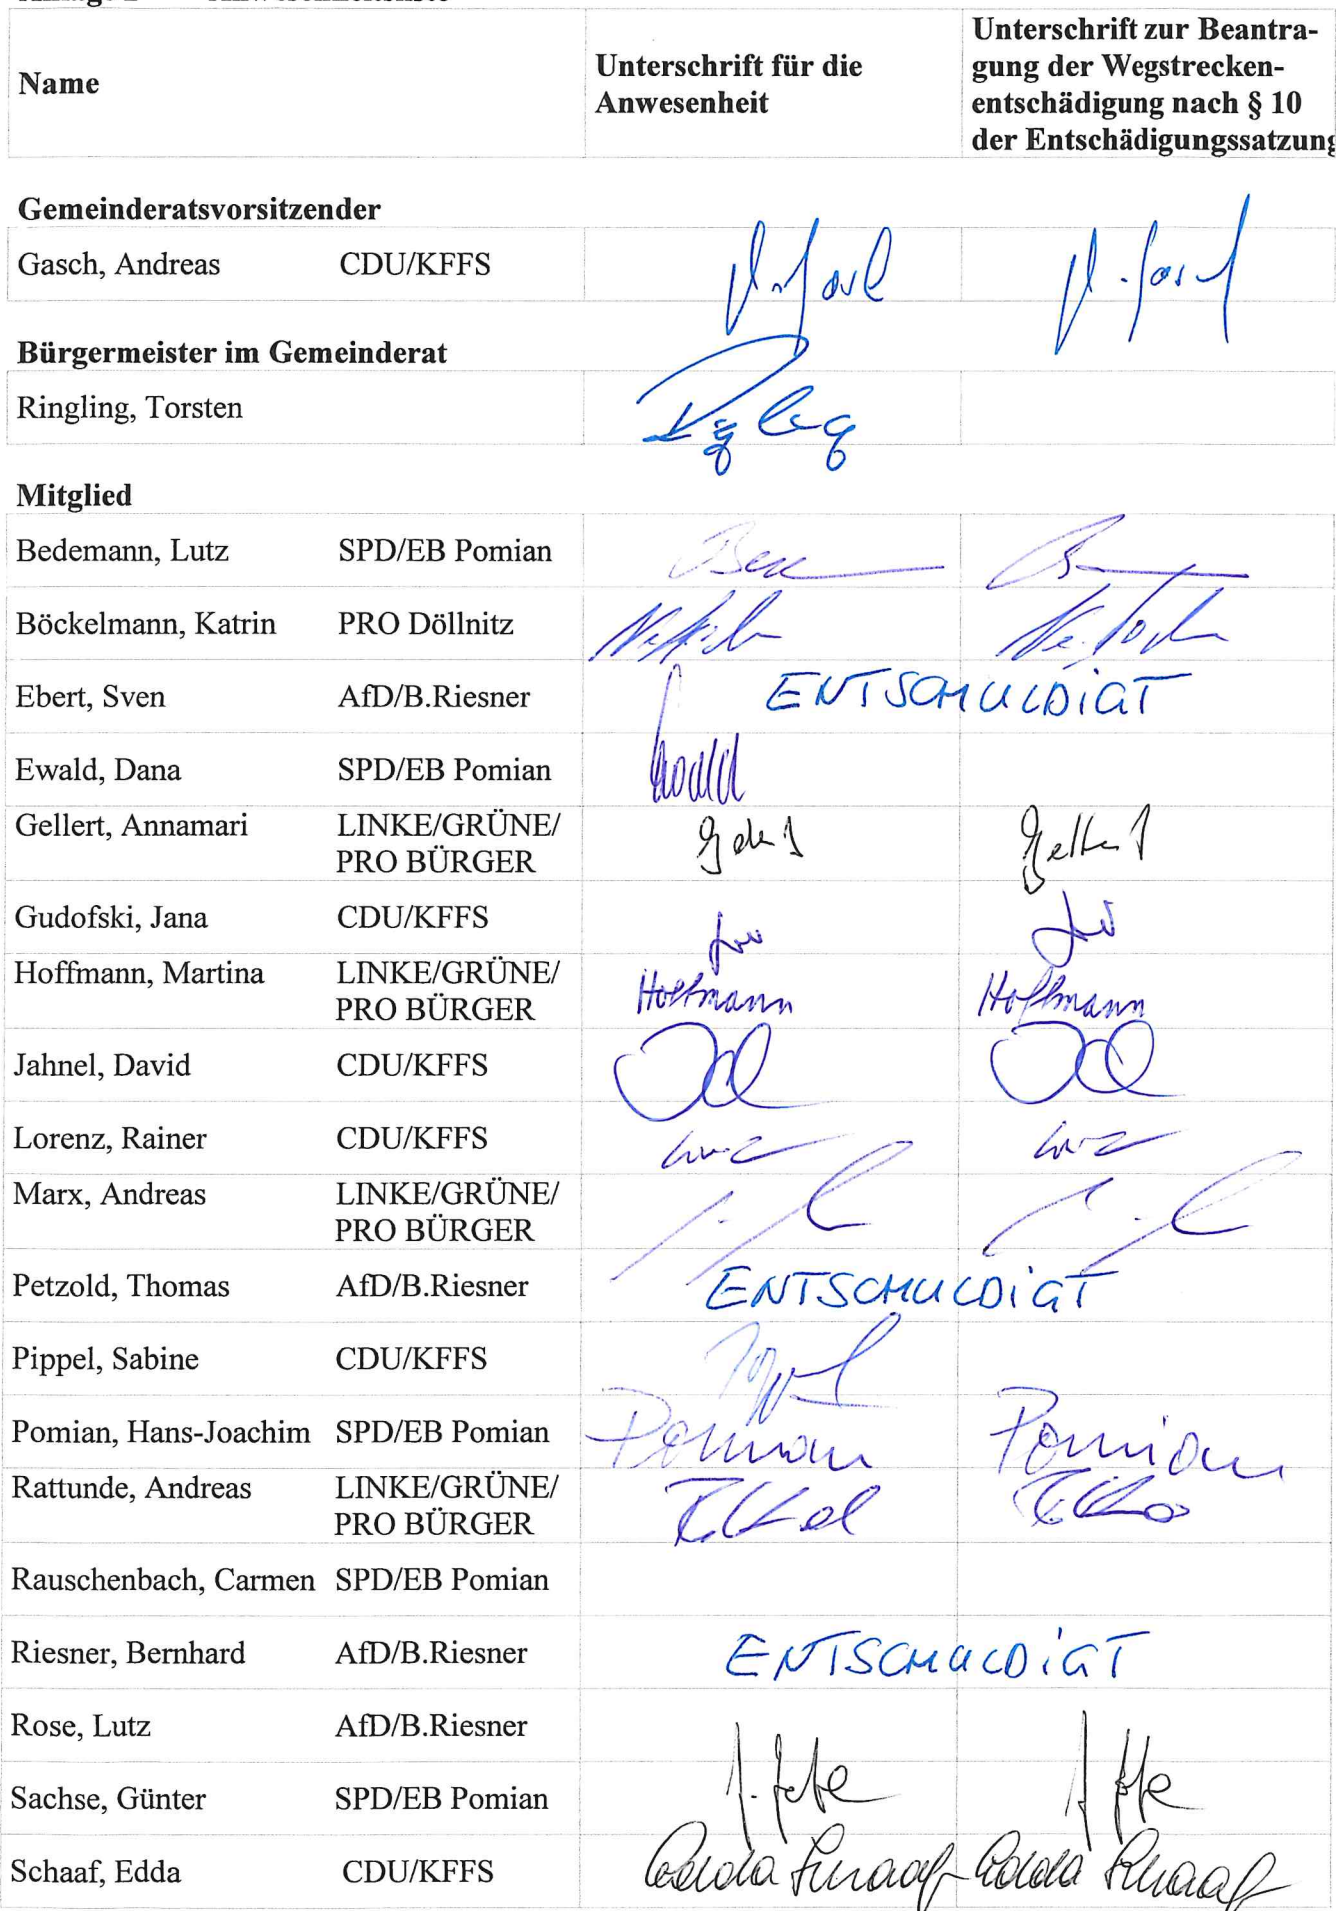 Name
Unterschrift für die
Anwesenheit
Unterschrift zur Beantra-
gung der Wegstrecken-
entschädigung nach § 10
der Entschädigungssatzung
Gemeinderatsvorsitzender
Gasch, Andreas CDU/KFFS
Bürgermeister im Gemeinderat
Ringling, Torsten
Mitglied
Bedemann, Lutz SPD/EB Pomian
Böckelmann, Katrin PRO Döllnitz
Ebert, Sven AfD/B.Riesner ENTSCHULDIGT
Ewald, Dana SPD/EB Pomian
Gellert, Annamari LINKE/GRÜNE/
PRO BÜRGER
Gudofski, Jana CDU/KFFS
Hoffmann, Martina LINKE/GRÜNE/
PRO BÜRGER Hoffmann Hoffmann
Jahnel, David CDU/KFFS
Lorenz, Rainer CDU/KFFS
Marx, Andreas LINKE/GRÜNE/
PRO BÜRGER
Petzold, Thomas AfD/B.Riesner ENTSCHULDIGT
Pippel, Sabine CDU/KFFS
Pomian, Hans-Joachim SPD/EB Pomian Pomian Pomian
Rattunde, Andreas LINKE/GRÜNE/
PRO BÜRGER
Rauschenbach, Carmen SPD/EB Pomian
Riesner, Bernhard AfD/B.Riesner ENTSCHULDIGT
Rose, Lutz AfD/B.Riesner
Sachse, Günter SPD/EB Pomian
Schaaf, Edda CDU/KFFS Edda Schaaf Edda Schaaf